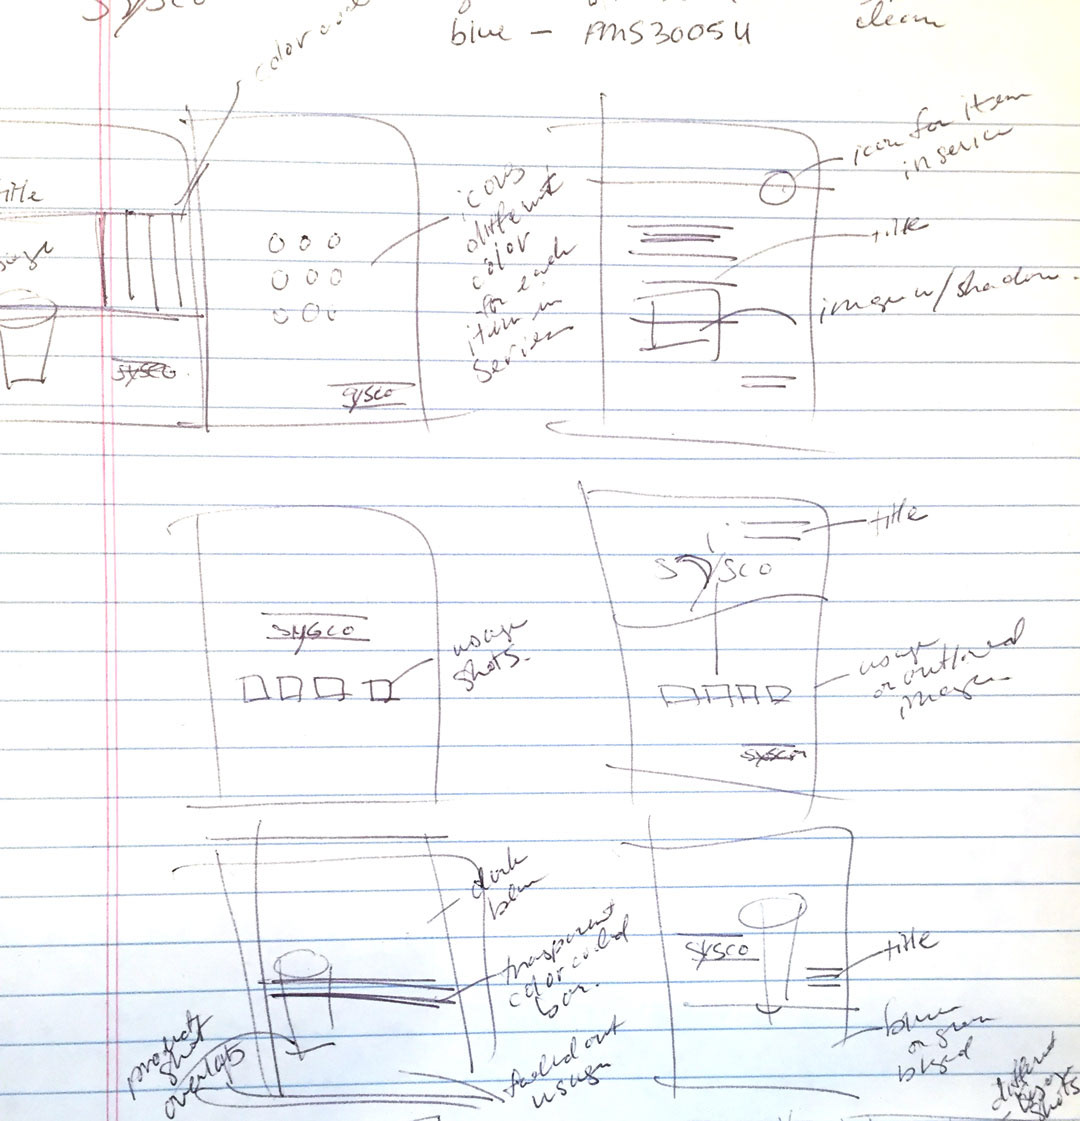 SYSCO
blue - PMS 3005 U
clean
color
title
SYSCO
icons
different
color
for each
item in
series
SYSCO
icon for item
in series
title
image w/shadow
SYSCO
usage
shots.
title
SYSCO
usage
or outlined
images
SYSCO
dark
blue
transparent
color coded
bar.
product
shot
overlaps
faded out
usage
SYSCO
title
blue
or green
bkgd
different
shots